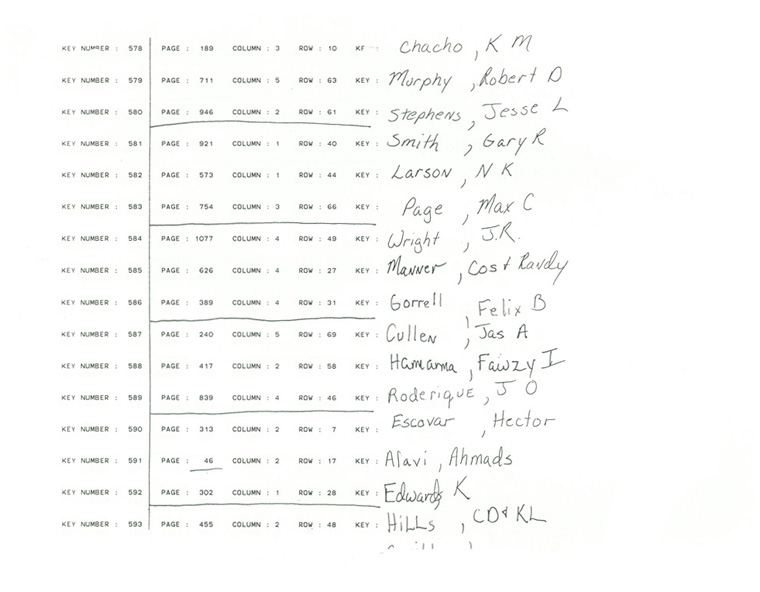 KEY NUMBER : 578 PAGE : 189 COLUMN : 3 ROW : 10 Chacho, K M
KEY NUMBER : 579 PAGE : 711 COLUMN : 5 ROW : 63 KEY : Murphy, Robert D
KEY NUMBER : 580 PAGE : 946 COLUMN : 2 ROW : 61 KEY : Stephens, Jesse L
KEY NUMBER : 581 PAGE : 921 COLUMN : 1 ROW : 40 KEY : Smith, Gary R
KEY NUMBER : 582 PAGE : 573 COLUMN : 1 ROW : 44 KEY : Larson, N K
KEY NUMBER : 583 PAGE : 754 COLUMN : 3 ROW : 66 KEY : Page, Max C
KEY NUMBER : 584 PAGE : 1077 COLUMN : 4 ROW : 49 KEY : Wright, J.R.
KEY NUMBER : 585 PAGE : 626 COLUMN : 4 ROW : 27 KEY : Manner, Cost Randy
KEY NUMBER : 586 PAGE : 389 COLUMN : 4 ROW : 31 KEY : Gorrell, Felix B
KEY NUMBER : 587 PAGE : 240 COLUMN : 5 ROW : 69 KEY : Cullen, Jas A
KEY NUMBER : 588 PAGE : 417 COLUMN : 2 ROW : 58 KEY : Hamarna, Fawzy I
KEY NUMBER : 589 PAGE : 839 COLUMN : 4 ROW : 46 KEY : Roderique, J O
KEY NUMBER : 590 PAGE : 313 COLUMN : 2 ROW : 7 KEY : Escovar, Hector
KEY NUMBER : 591 PAGE : 46 COLUMN : 2 ROW : 17 KEY : Alavi, Ahmads
KEY NUMBER : 592 PAGE : 302 COLUMN : 1 ROW : 28 KEY : Edwards K
KEY NUMBER : 593 PAGE : 455 COLUMN : 2 ROW : 48 KEY : Hills, CD & KL